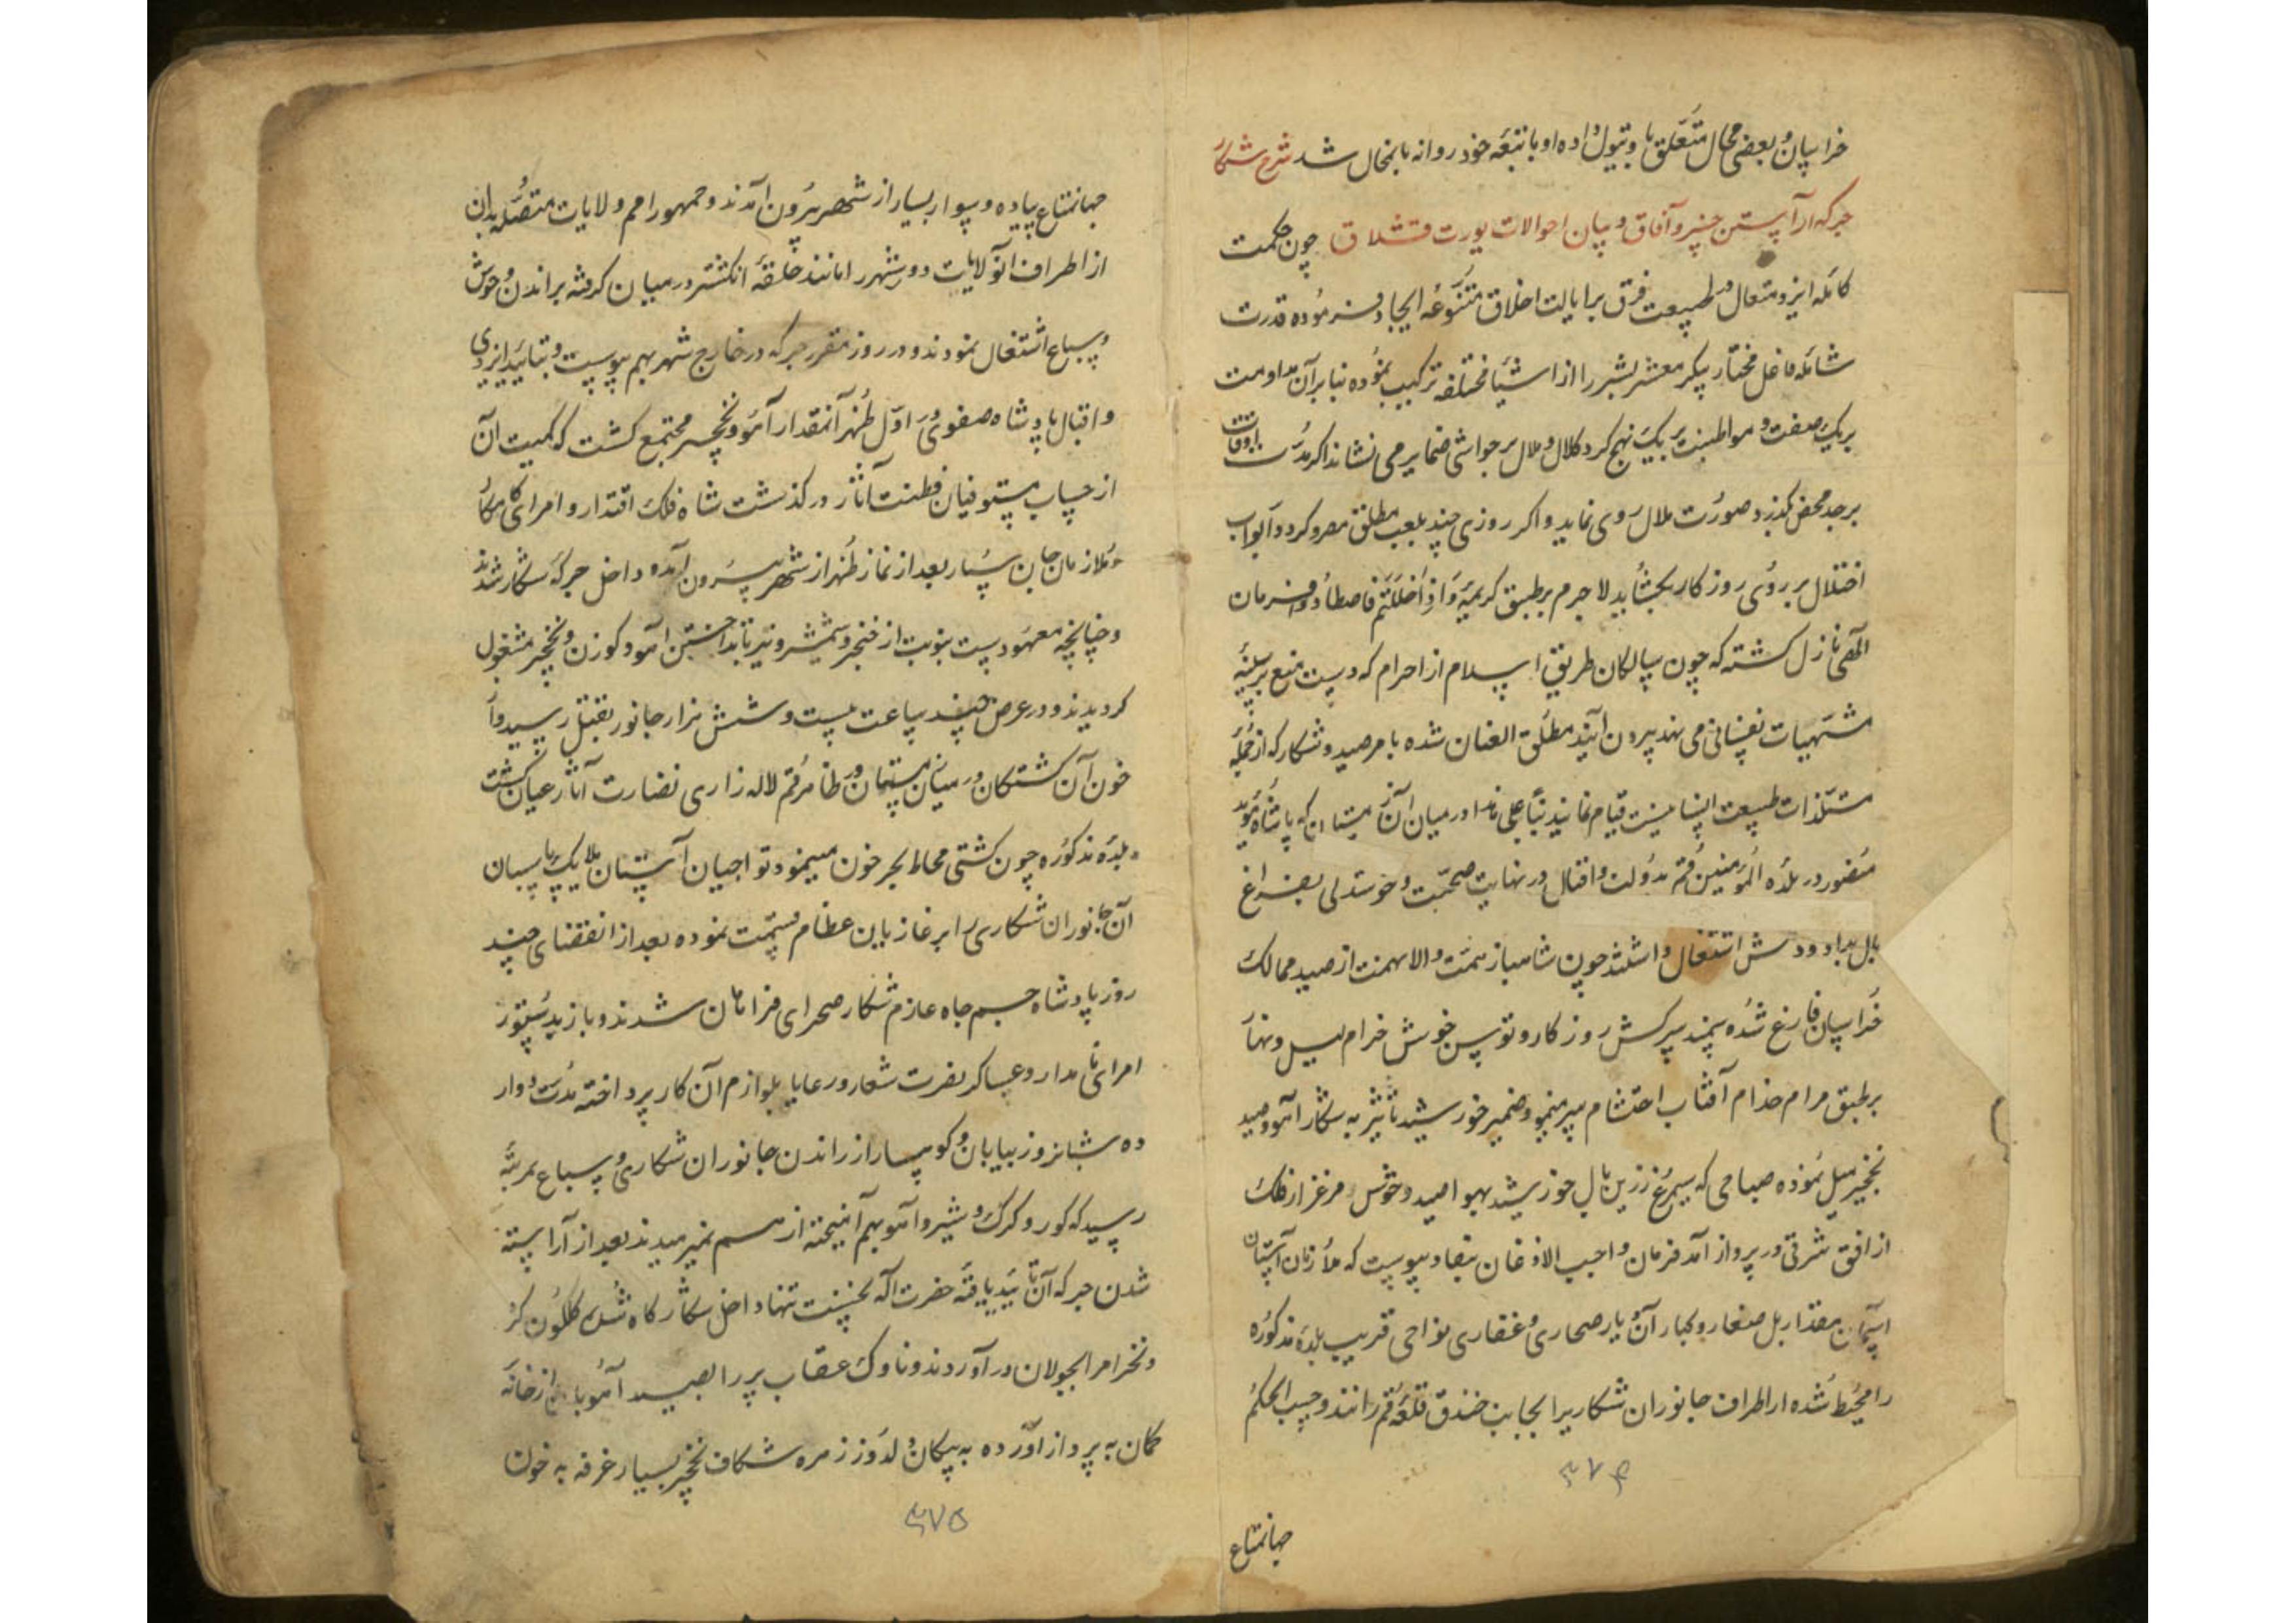 خراسان و بعضی محال متعلق باو تیول داده او با تبعه خود روانه بانمحال شد شرح شکار
جرکه ار آراستن خسرو آفاق و بیان احوالات یورت قشلاق چون حکمت
کامله ایزد متعال در طبیعت فرق برایا لیت اخلاق متنوعه ایجاد فرموده قدرت
شامله فاعل مختار پیکر معشر بشر را از اشیا مختلفه ترکیب نموده بنا بر آن مداومت
بر یک صفت و مواظبت بر یک نهج کرد کلال و ملال بر حواشی ضمایر می نشاند اکر مدت اوقات
بر جد محض کذرد صورت ملال روی نماید و اکر روزی چند بلعب مطلق مصروکردد ابواب
اختلال بر روی روزکار بکشاید لاجرم بر طبق کریمه و اذا حللتم فاصطادوا فرمان
الهی نازل کشته که چون سالکان طریق اسلام از احرام که دست منع بر سینه
مشتهیات نفسانی می نهد بیرون آیند مطلق العنان شده بامر صید و شکار که از جمله
مستلذات طبیعت انسانیست قیام نمایند بنا علی هذا در میان آن زمستان که پادشاه مؤید
منصور در بلده المؤمنین قم بدولت و اقبال در نهایت صحت و خوشدلی بفراغ
بال بداد و دهش اشتغال داشتند چون شاهباز همت والا نهمت از صید ممالک
خراسان فارغ شده سمند سرکش روزکار و توسن خوش خرام لیل و نهار
بر طبق مرام خدام آفتاب احتشام سیر مینمود ضمیر خورشید تاثیر به شکار آهو و صید
نخجیر میل نموده صباحی که سیمرغ زرین بال خورشید بهوا صید وحوش مرغزار فلک
از افق شرقی در پرواز آمد فرمان واجب الاذعان بنفاد پیوست که ملازمان آستان
آسمان مقدار بل صغار و کبار آن دیار صحاری و غفاری نواحی قریب بلده مذکوره
را محیط شده از اطراف جانوران شکاریرا بجانب خندق قلعه قم رانند و حسب الحکم
۳۷۴
جهانمتاع
جهانمتاع پیاده و سوار بسیار از شهر بیرون آمدند و جمهور امم ولایات متصله بدان
از اطراف انولایات دور شهر را مانند حلقه انکشتر در میان کرفته براندن وحوش
و سباع اشتغال نمودند و در روز مقرر جرکه در خارج شهر بهم پیوست و بتائید ایزدی
و اقبال پادشاه صفوی اول ظهر آنمقدار آهو و نخجیر مجتمع کشت که کمیت آن
از حساب مستوفیان فطنت آثار در کذشت شاه فلک اقتدار و امرای کامکار
و ملازمان جان سپار بعد از نماز ظهر از شهر بیرون آمده داخل جرکه شکار شدند
و چنانچه معهودست بنوبت از خنجر و شمشیر و تیر بانداختن آهو و کوزن و نخجیر مشغول
کردیدند و در عرض چند ساعت بیست و شش هزار جانور بقتل رسید و از
خون آن کشتکان در میان زمستان در ظاهر قم لاله زاری نضارت آثار عیان کشت
و بلده مذکوره چون کشتی محاط بحر خون مینمود تواجیان آستان ملایک پاسبان
آن جانوران شکاری را بر غازیان عظام قسمت نموده بعد از انقضای چند
روز پادشاه جسم جاه عازم شکار صحرای فراهان شدند و باز بدستور
امرای نامدار و عساکر نصرت شعار و رعایا بلوازم آن کار پرداخته مدت دوازده
ده شبانروز بیابان و کوهسار از راندن جانوران شکاری و سباع بمرتبه
رسید که کور و کرک و شیر و آهو بهم آمیخته از هم نمیرمیدند بعد از آراسته
شدن جرکه آن تائید یافته حضرت اله نخست تنها داخل شکارکاه شده کلکون کر
و نخرامرا بجولان در آوردند و ناوک عقاب پر را بصید آهو از خانه
کمان به پرواز آورده به پیکان دلدوز زمره شکاف نخجیر بسیار غرقه به خون
۳۷۵